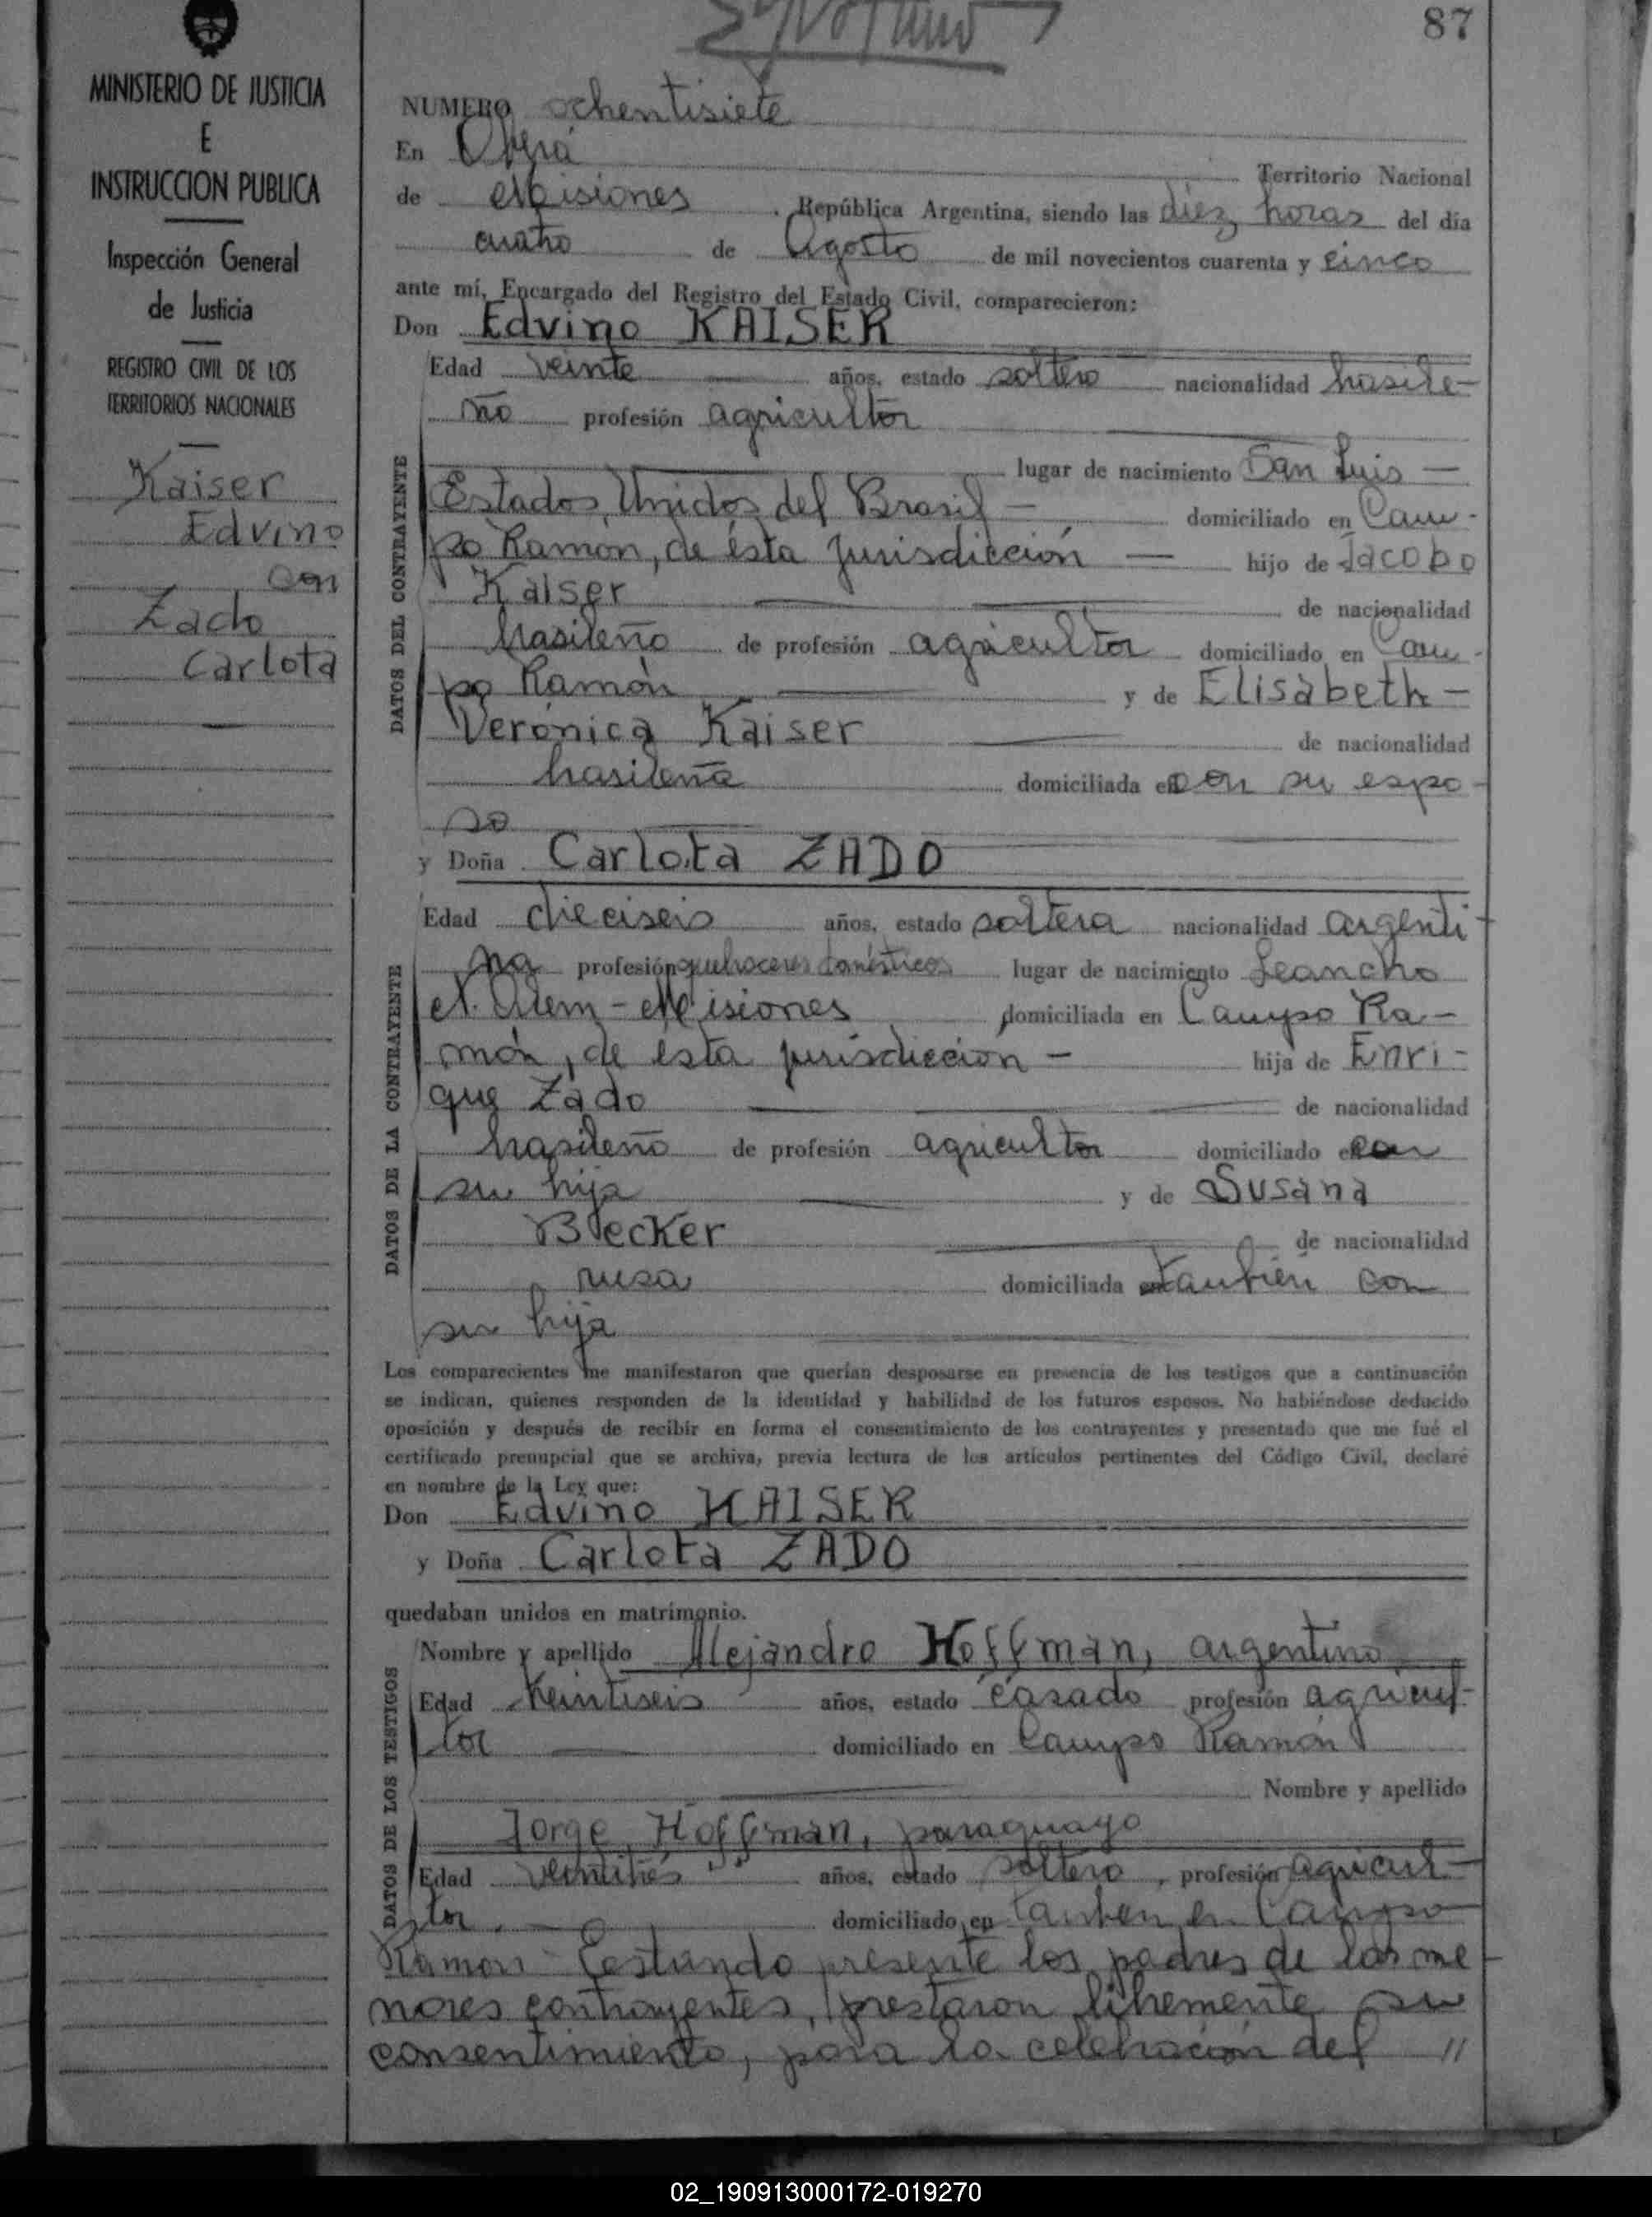 87
MINISTERIO DE JUSTICIA
E
INSTRUCCION PUBLICA
Inspección General
de Justicia
REGISTRO CIVIL DE LOS
TERRITORIOS NACIONALES
Kaiser
Edvino
con
Zado
Carlota
NUMERO ochentisiete
En Oberá Territorio Nacional
de Misiones República Argentina, siendo las diez horas del día
cuatro de Agosto de mil novecientos cuarenta y cinco
ante mí, Encargado del Registro del Estado Civil, comparecieron:
Don Edvino KAISER
DATOS DEL CONTRAYENTE
Edad veinte años, estado soltero nacionalidad brasile-
ño profesión agricultor
lugar de nacimiento San Luis —
Estados Unidos del Brasil — domiciliado en Cam-
po Ramón, de ésta jurisdicción — hijo de Jacobo
Kaiser de nacionalidad
brasileño de profesión agricultor domiciliado en Cam-
po Ramón y de Elisabeth —
Verónica Kaiser de nacionalidad
brasileña domiciliada en con su espo-
so
y Doña Carlota ZADO
DATOS DE LA CONTRAYENTE
Edad dieciseis años, estado soltera nacionalidad argenti-
na profesión quehaceres domésticos lugar de nacimiento Leandro
N. Alem - Misiones domiciliada en Campo Ra-
món, de esta jurisdicción — hija de Enri-
que Zado de nacionalidad
brasileño de profesión agricultor domiciliado en con
su hija y de Susana
Becker de nacionalidad
rusa domiciliada en también con
su hija
Los comparecientes me manifestaron que querían desposarse en presencia de los testigos que a continuación
se indican, quienes responden de la identidad y habilidad de los futuros esposos. No habiéndose deducido
oposición y después de recibir en forma el consentimiento de los contrayentes y presentado que me fué el
certificado prenupcial que se archiva, previa lectura de los artículos pertinentes del Código Civil, declaré
en nombre de la Ley que:
Don Edvino KAISER
y Doña Carlota ZADO
quedaban unidos en matrimonio.
DATOS DE LOS TESTIGOS
Nombre y apellido Alejandro Hoffman, argentino
Edad veintiseis años, estado casado profesión agricul-
tor domiciliado en Campo Ramón
Nombre y apellido
Jorge Hoffman, paraguayo
Edad veintitrés años, estado soltero, profesión agricul-
tor domiciliado en también en Campo
Ramón - Estando presente los padres de los me
nores contrayentes, prestaron libremente su
consentimiento, para la celebración del //
02_190913000172-019270